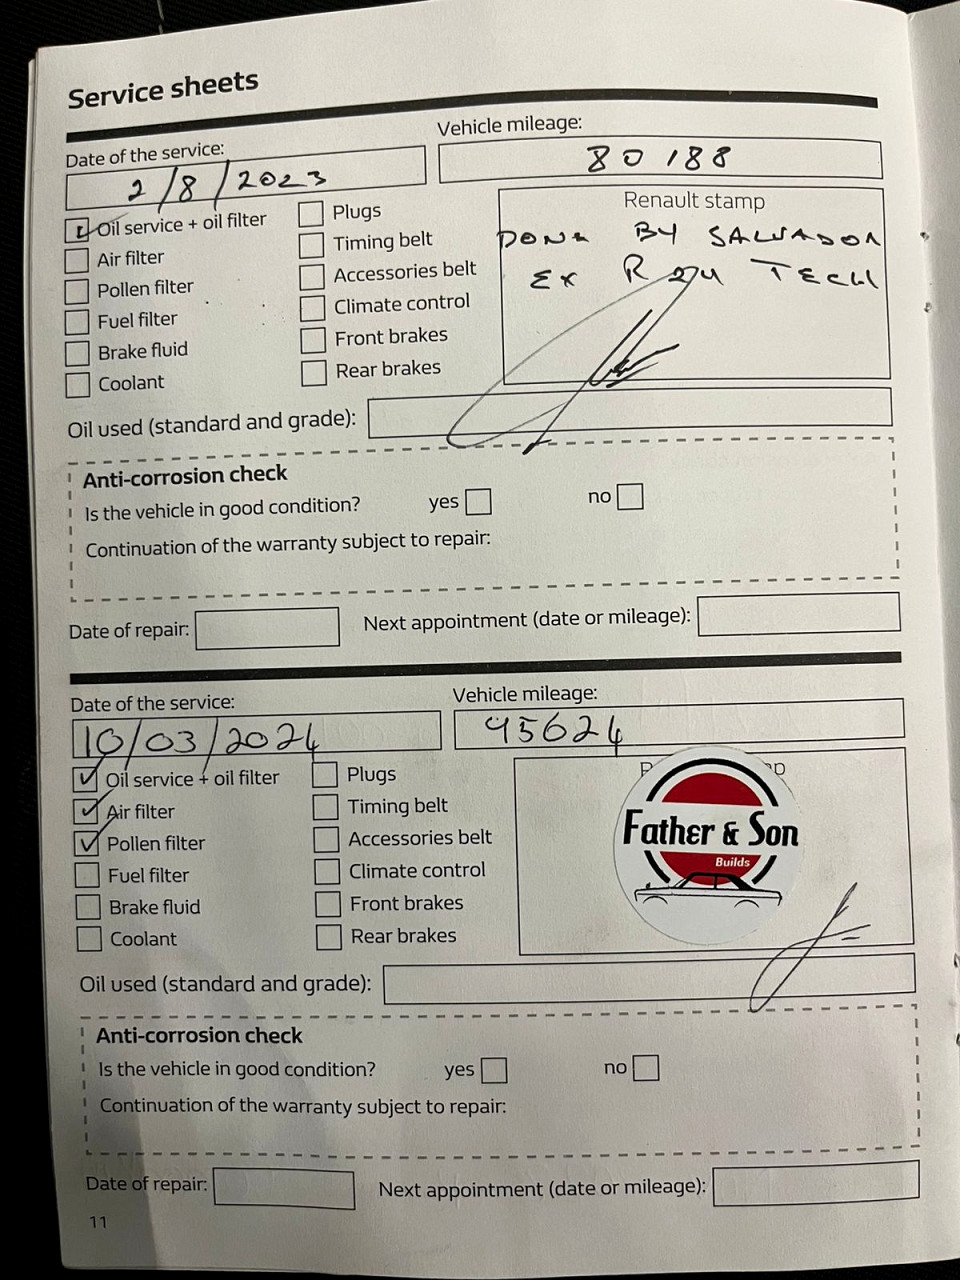 Service sheets
Date of the service:
Vehicle mileage:
2/8/2023
80188
Oil service + oil filter
Plugs
Renault stamp
Air filter
Timing belt
DONE BY SALVADOR
Pollen filter
Accessories belt
EX TECH
Fuel filter
Climate control
Brake fluid
Front brakes
Coolant
Rear brakes
Oil used (standard and grade):
Anti-corrosion check
Is the vehicle in good condition?
yes
no
Continuation of the warranty subject to repair:
Date of repair:
Next appointment (date or mileage):
Date of the service:
Vehicle mileage:
10/03/2024
95624
Oil service + oil filter
Plugs
Air filter
Timing belt
Father & Son
Pollen filter
Accessories belt
Builds
Fuel filter
Climate control
Brake fluid
Front brakes
Coolant
Rear brakes
Oil used (standard and grade):
Anti-corrosion check
Is the vehicle in good condition?
yes
no
Continuation of the warranty subject to repair:
Date of repair:
Next appointment (date or mileage):
11